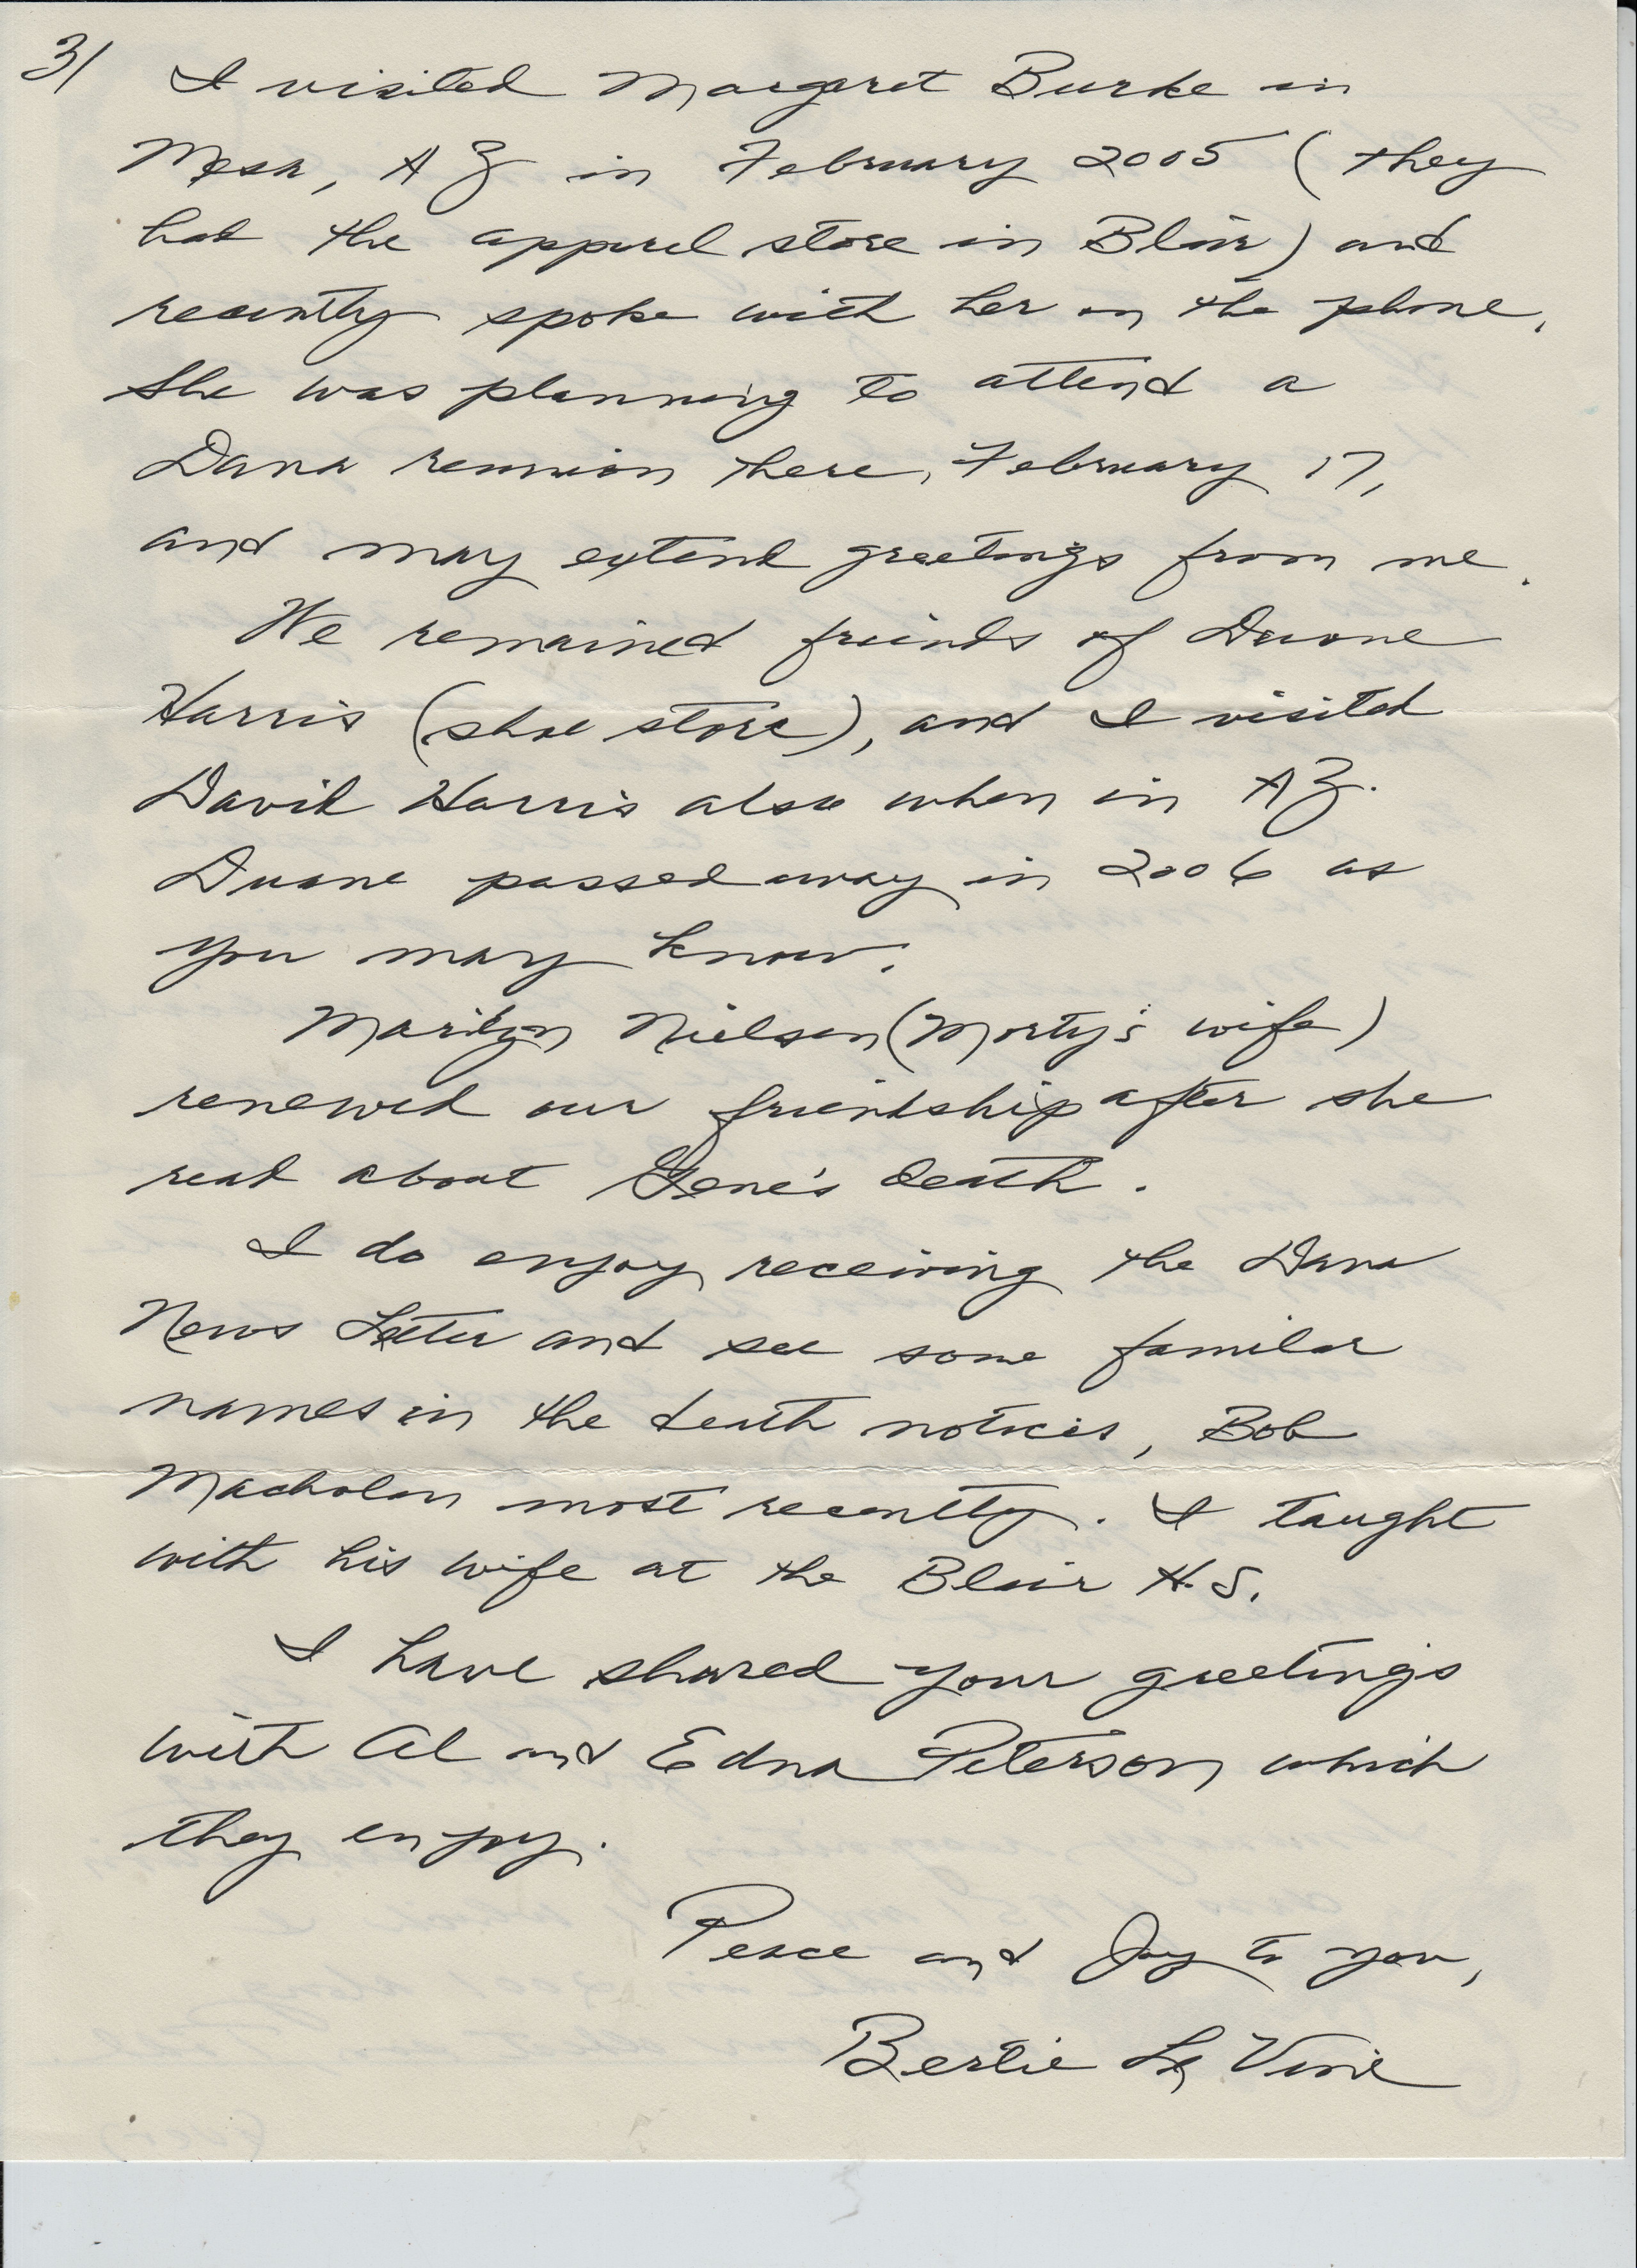 3/ I visited Margaret Burke in
Mesa, AZ in February 2005 (they
had the apparel store in Blair) and
recently spoke with her on the phone.
She was planning to attend a
Dana reunion there, February 17,
and may extend greetings from me.
We remained friends of Duane
Harris (shoe store), and I visited
David Harris also when in AZ.
Duane passed away in 2006 as
you may know.
Marilyn Nielsen (Morty's wife)
renewed our friendship after she
read about Gene's death.
I do enjoy receiving the Dana
News Letter and see some familar
names in the death notices, Bob
Macholan most recently. I taught
with his wife at the Blair H.S.
I have shared your greetings
with Al and Edna Peterson which
they enjoy.
Peace and Joy to you,
Bertie Le Vine